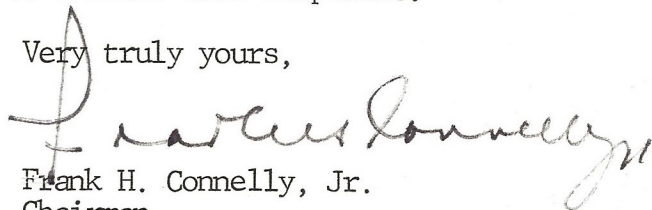 Very truly yours,
Frank H. Connelly Jr
Frank H. Connelly, Jr.
Chairman